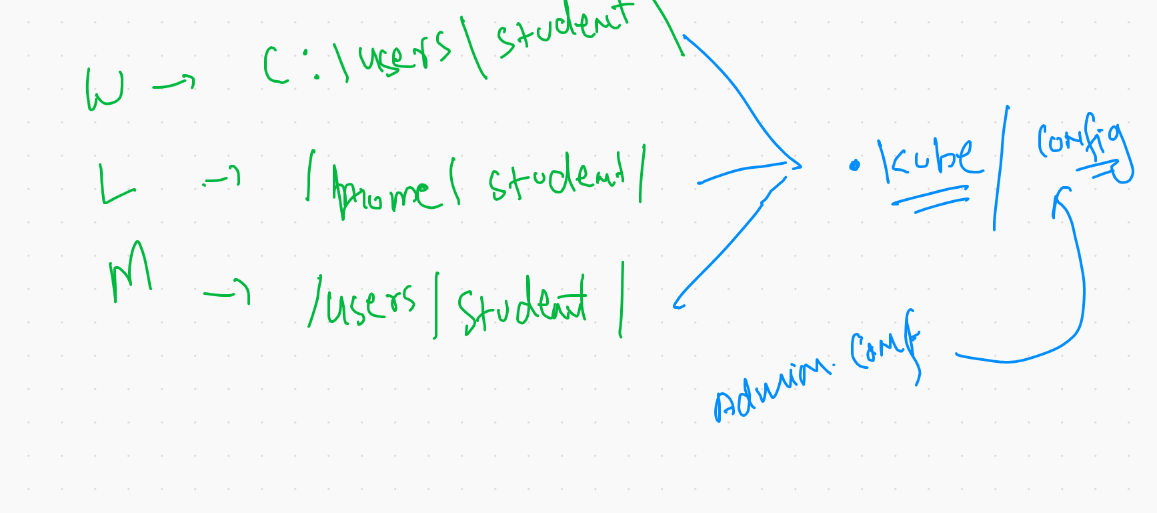 W → C:\users\student\
L → /home/student/
M → /users/student/
.kube/config
admin.conf